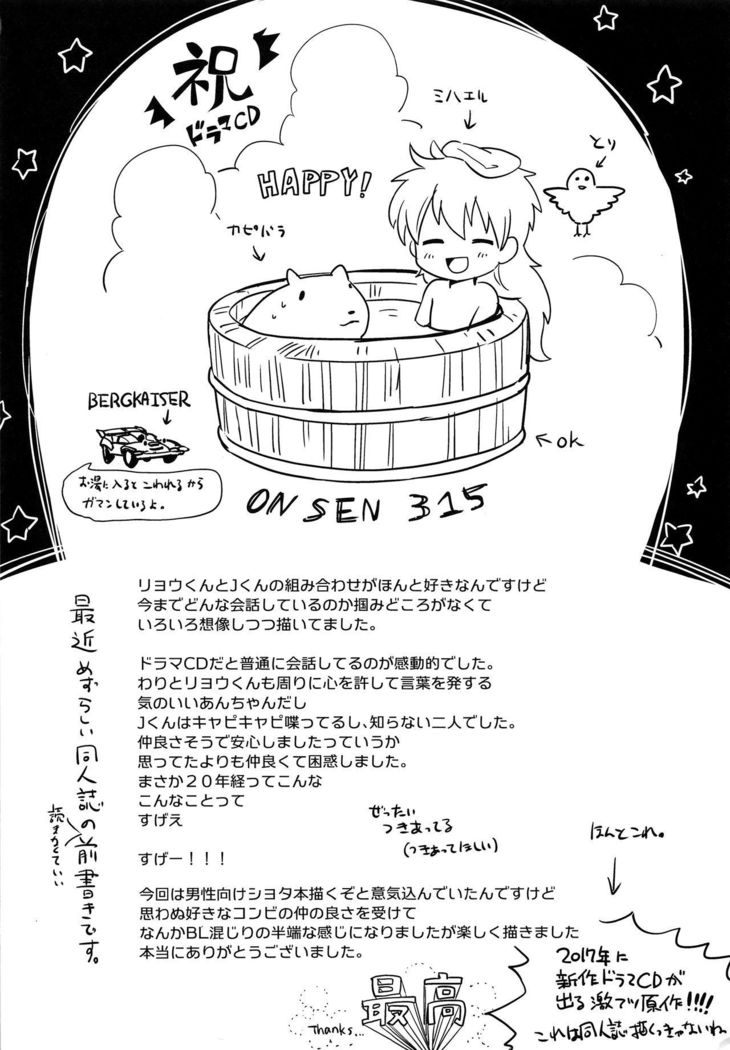 祝
ドラマCD
ミハエル
とり
HAPPY!
カピバラ
BERGKAISER
お湯に入るとこわれるから
ガマンしているよ。
ok
ONSEN 315
最近めずらしい同人誌の前書きです。
読まなくていい
リヨウくんとJくんの組み合わせがほんと好きなんですけど
今までどんな会話しているのか掴みどころがなくて
いろいろ想像しつつ描いてました。
ドラマCDだと普通に会話してるのが感動的でした。
わりとリヨウくんも周りに心を許して言葉を発する
気のいいあんちゃんだし
Jくんはキャピキャピ喋ってるし、知らない二人でした。
仲良さそうで安心しましたっていうか
思ってたよりも仲良くて困惑しました。
まさか２０年経ってこんな
こんなことって
すげえ
すげー！！！
ぜったい
つきあってる
(つきあってほしい)
ほんとこれ。
今回は男性向けショタ本描くぞと意気込んでいたんですけど
思わぬ好きなコンビの仲の良さを受けて
なんかBL混じりの半端な感じになりましたが楽しく描きました
本当にありがとうございました。
Thanks...
最高
2017年に
新作ドラマCDが
出る激アツ原作!!!!
これは同人誌描くっきゃないわ〜